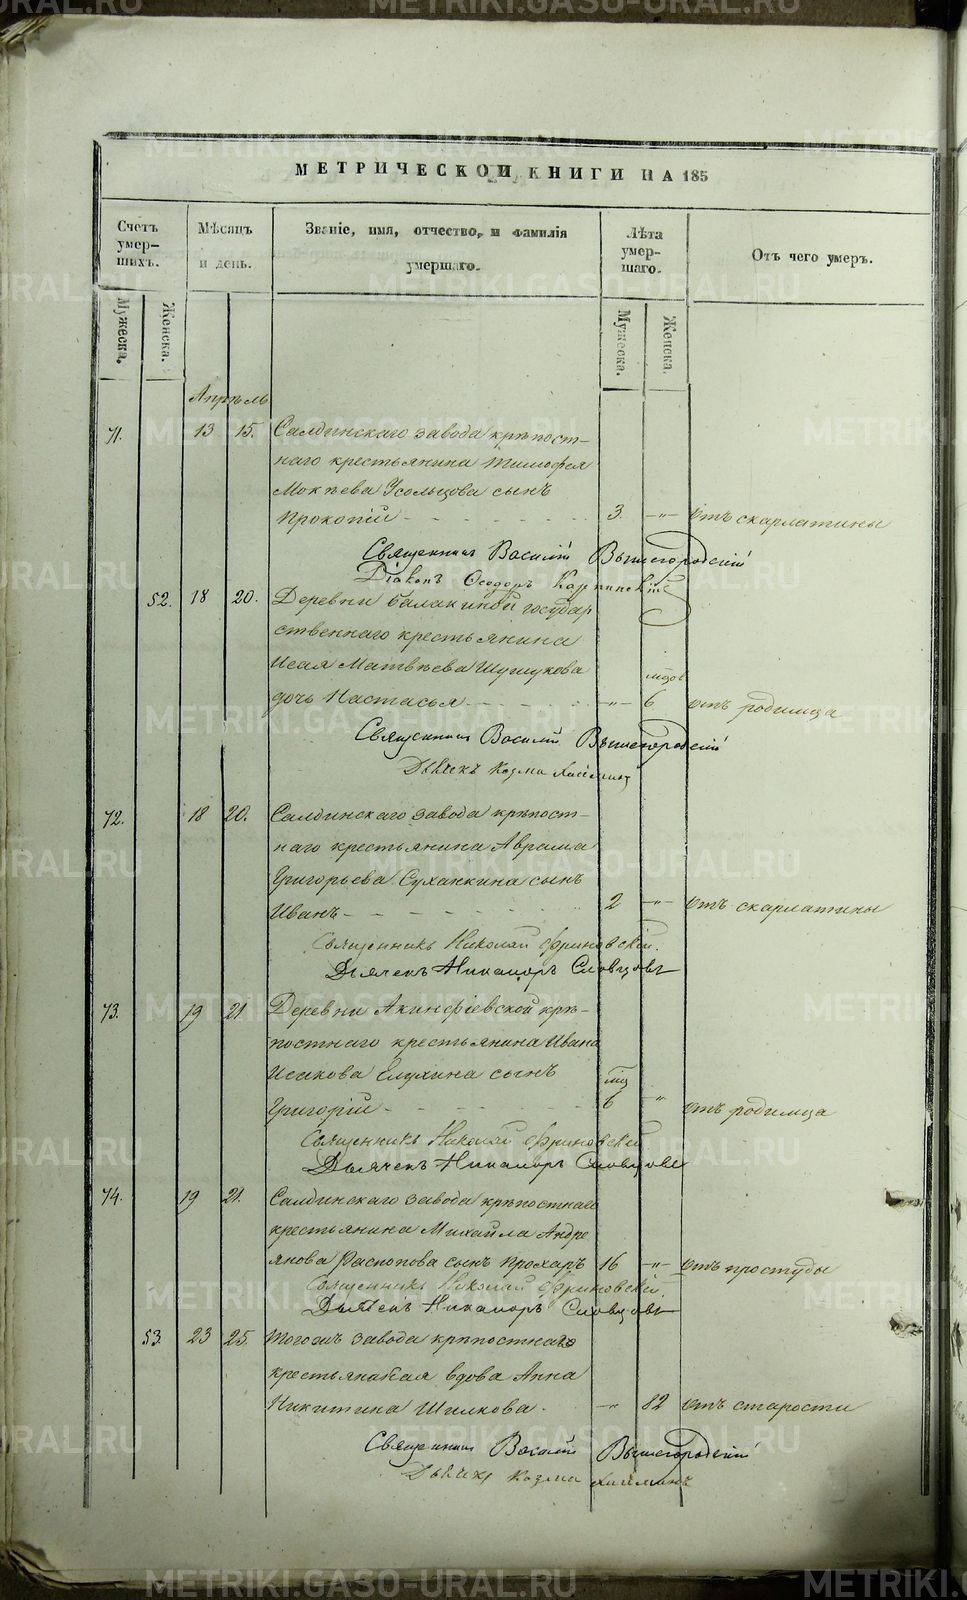 METRIKI.GASO-URAL.RU
МЕТРИЧЕСКОЙ КНИГИ НА 185
Счетъ умер- шихъ.
Мѣсяцъ и день.
Званіе, имя, отчество, и фамилія умершаго.
Лѣта умер- шаго.
Отъ чего умеръ.
Мужеска.
Женска.
Мужеска.
Женска.
Апрѣль
71. 13 15. Салдинскаго завода крѣпост-
наго крестьянина Тимофея
Мокѣева Усольцова сынъ
Прокопій 3. —"— отъ скарлатины
Священникъ Василій Вышегородскій
Діаконъ Ѳеодоръ Карпинскій
52. 18 20. Деревни Балакиной государ
ственнаго крестьянина
Исая Матвѣева Шушукова
дочь Настасья —"— 6 отъ родимца
Священникъ Василій Вышегородскій
Дьячекъ Козма
72. 18 20. Салдинскаго завода крѣпост-
наго крестьянина Аврама
Григорьева Суханкина сынъ
Иванъ 2 —"— отъ скарлатины
Священникъ Николай Фриновскій.
Дьячекъ Никаноръ Словцовъ
73. 19 21 Деревни Акинфіевской крѣ-
постнаго крестьянина Ивана
Исакова Елухина сынъ
мц
Григорій 6 " отъ родимца
Священникъ Николай Фриновскій
Дьячекъ Никаноръ Словцовъ
74. 19 21. Салдинскаго завода крѣпостнаго
крестьянина Михайла Андре
янова Распопова сынъ Прохаръ 16 —"— Отъ простуды
Священникъ Николай Фриновскій.
Дьячекъ Никаноръ Словцовъ
53. 23 25. Тогожъ завода крѣпостнаго
вдова Анна
Никитина Шилкова. —"— 82 отъ старости
Священникъ Василій Вышегородскій
Дьячекъ Козма